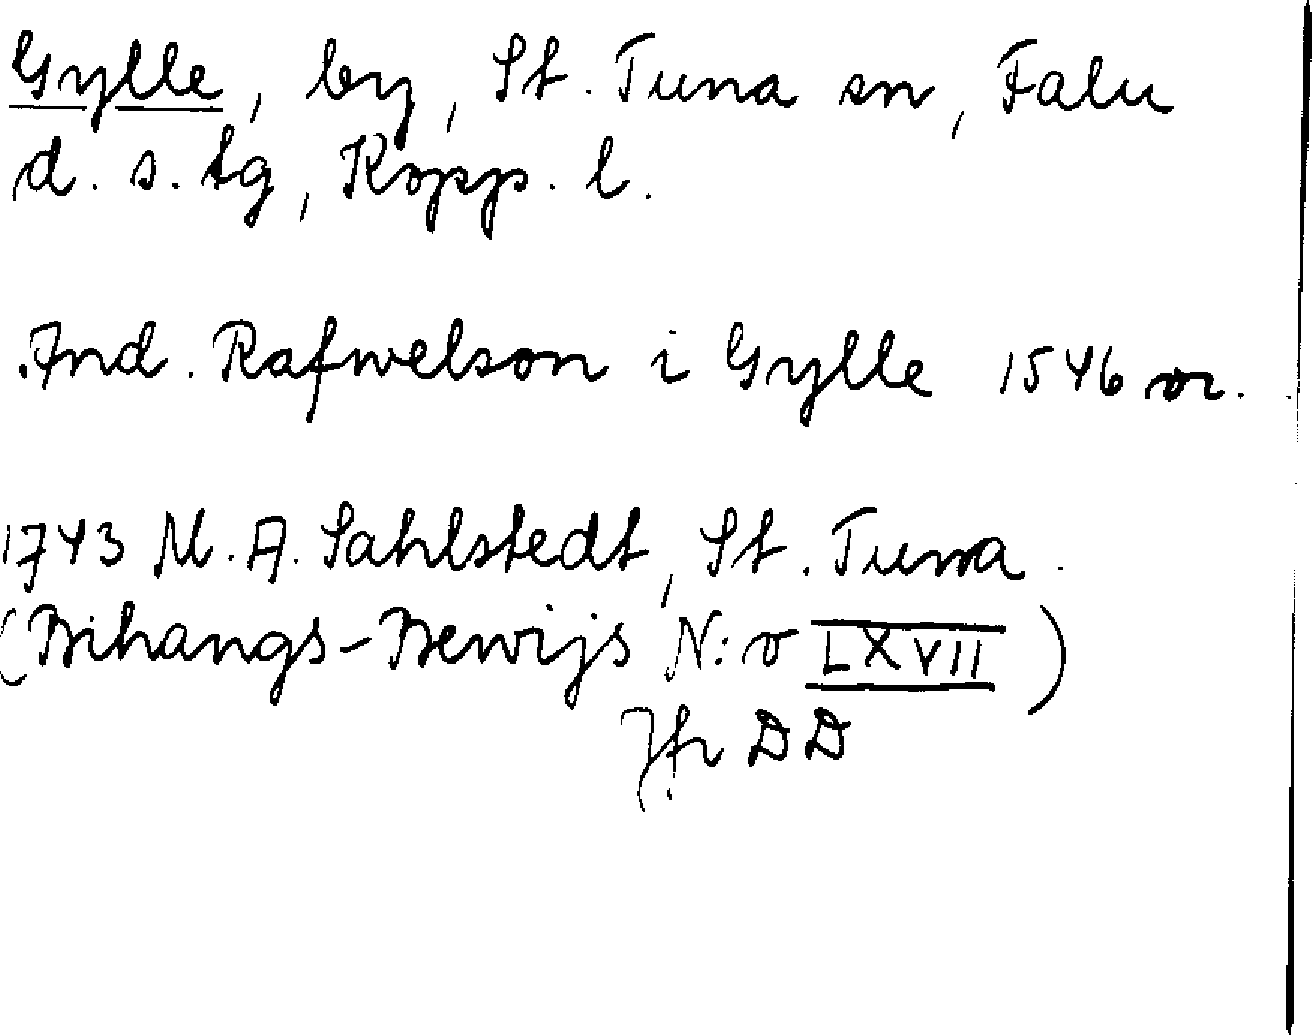 Gylle, by, St. Tuna sn, Falu
d. s. tg, Kopp. l.
And. Rafwelson i Gylle 1546 or.
1743 M. A. Sahlstedt, St. Tuna.
(Bihangs-Bewijs N:o LXVII)
Jfr DD